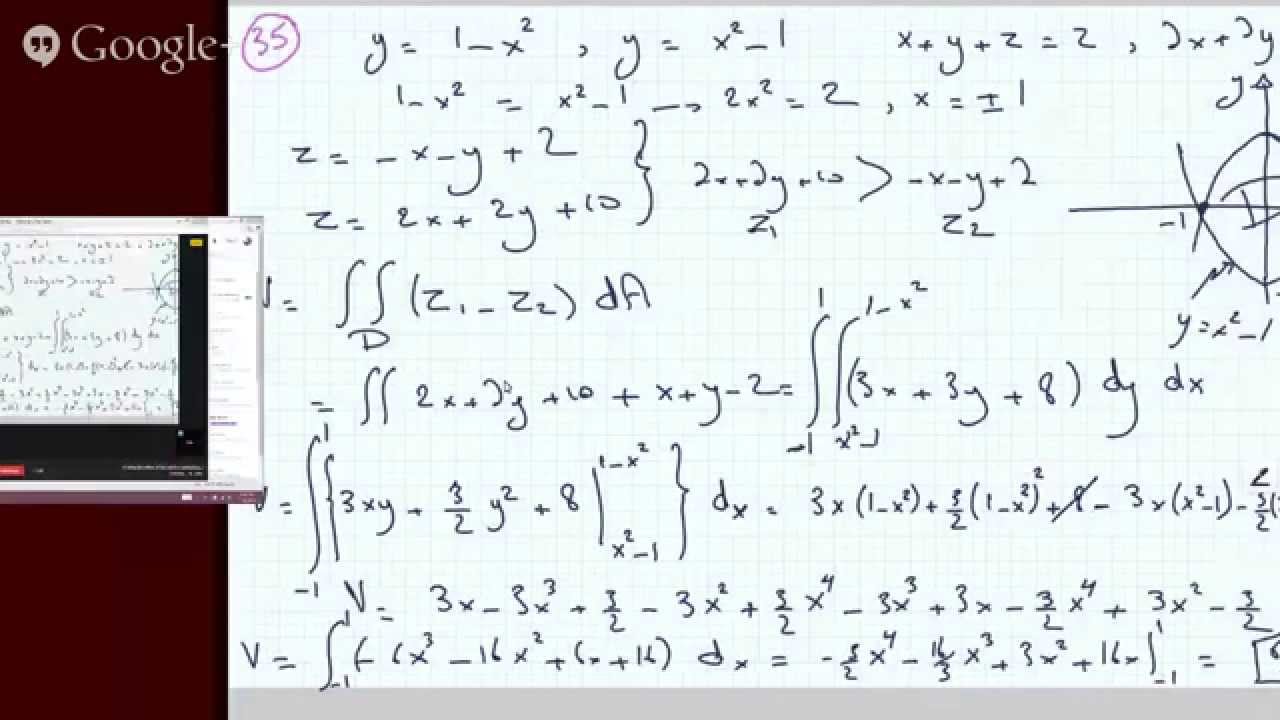 Google-
35 y = 1-x² , y = x²-1 x+y+z = 2 , 2x+2y
1-x² = x²-1 → 2x² = 2 , x = ±1
y
z = -x-y+2
z = 2x+2y+10 } 2x+2y+10 > -x-y+2
z₁ z₂
-1 D
y = x²-1
V = ∬_D (z₁ - z₂) dA
= ∬ 2x+2y+10+x+y-2 = ∫_{-1}^{1} ∫_{x²-1}^{1-x²} (3x+3y+8) dy dx
V = ∫_{-1}^{1} { 3xy + 3/2 y² + 8 |_{x²-1}^{1-x²} } dx = 3x(1-x²) + 3/2 (1-x²)² + 8 - 3x(x²-1) - 3/2
V = 3x - 3x³ + 3/2 - 3x² + 3/2 x⁴ - 3x³ + 3x - 3/2 x⁴ + 3x² - 3/2
V = ∫_{-1}^{1} (-6x³ - 16x² + 6x + 16) dx = -3/2 x⁴ - 16/3 x³ + 3x² + 16x |_{-1}^{1} =